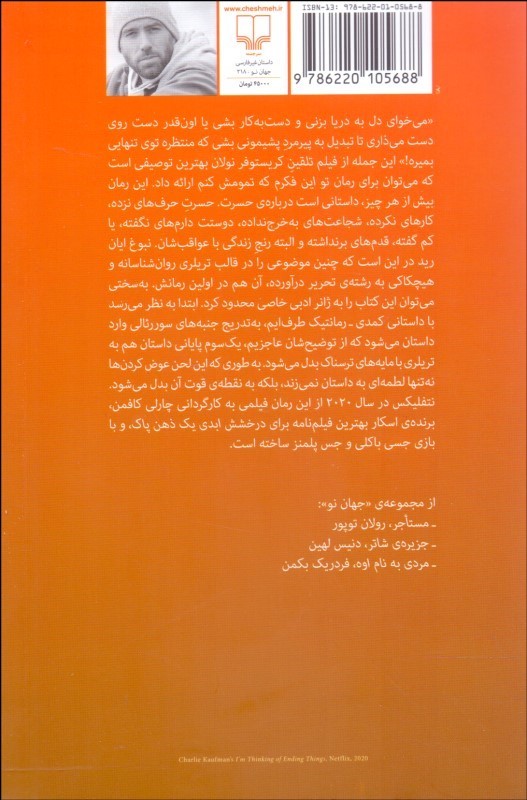 www.cheshmeh.ir
داستان غیرفارسی
جهان نو - ۳۱۸
۶۵۰۰۰ تومان
ISBN-13: 978-622-01-0568-8
9 786220 105688
«می‌خوای دل به دریا بزنی و دست‌به‌کار بشی یا اون‌قدر دست روی
دست می‌ذاری تا تبدیل به پیرمردِ پشیمونی بشی که منتظره توی تنهایی
بمیره!» این جمله از فیلم تلقینِ کریستوفر نولان بهترین توصیفی است
که می‌توان برای رمان تو این فکرم که تمومش کنم ارائه داد. این رمان
بیش از هر چیز، داستانی است درباره‌ی حسرت. حسرتِ حرف‌های نزده،
کارهای نکرده، شجاعت‌های به‌خرج‌نداده، دوستت دارم‌های نگفته، یا
کم گفته. قدم‌های برنداشته و البته رنج زندگی با عواقب‌شان. نبوغ ایان
رید در این است که چنین موضوعی را در قالب تریلری روان‌شناسانه و
هیچکاکی به رشته‌ی تحریر درآورده، آن هم در اولین رمانش. به‌سختی
می‌توان این کتاب را به ژانر ادبی خاصی محدود کرد. ابتدا به نظر می‌رسد
با داستانی کمدی ـ رمانتیک طرف‌ایم، به‌تدریج جنبه‌های سوررئالی وارد
داستان می‌شود که از توضیح‌شان عاجزیم، یک‌سوم پایانی داستان هم به
تریلری با مایه‌های ترسناک بدل می‌شود. به طوری که این لحن عوض کردن‌ها
نه‌تنها لطمه‌ای به داستان نمی‌زند، بلکه به نقطه‌ی قوت آن بدل می‌شود.
نتفلیکس در سال ۲۰۲۰ از این رمان فیلمی به کارگردانی چارلی کافمن،
برنده‌ی اسکار بهترین فیلم‌نامه برای درخشش ابدی یک ذهن پاک، و با
بازی جسی باکلی و جس پلمنز ساخته است.
از مجموعه‌ی «جهان نو»:
ـ مستأجر، رولان توپور
ـ جزیره‌ی شاتر، دنیس لهین
ـ مردی به نام اوه، فردریک بکمن
Charlie Kaufman's I'm Thinking of Ending Things, Netflix, 2020